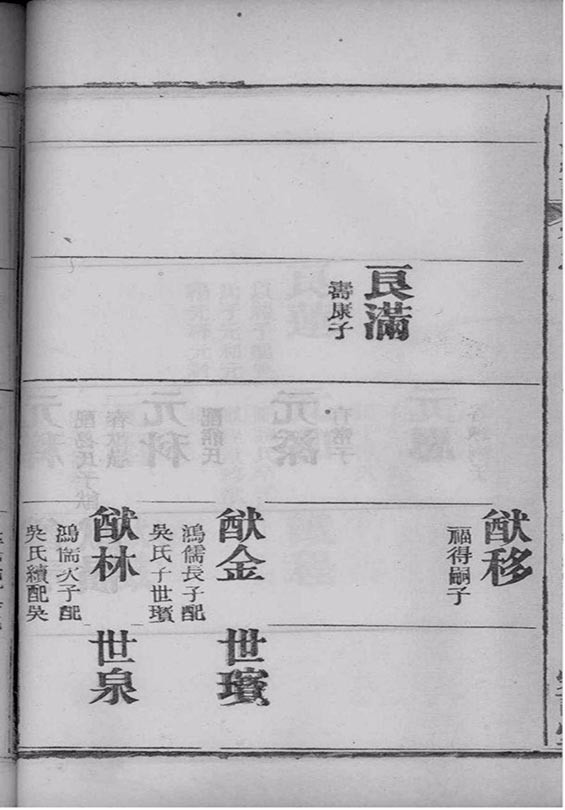 良滿
壽康子
猷移
福得嗣子
猷金
鴻儒長子配
吳氏子世璸
世璸
猷林
鴻儒次子配
吳氏續配吳
世泉